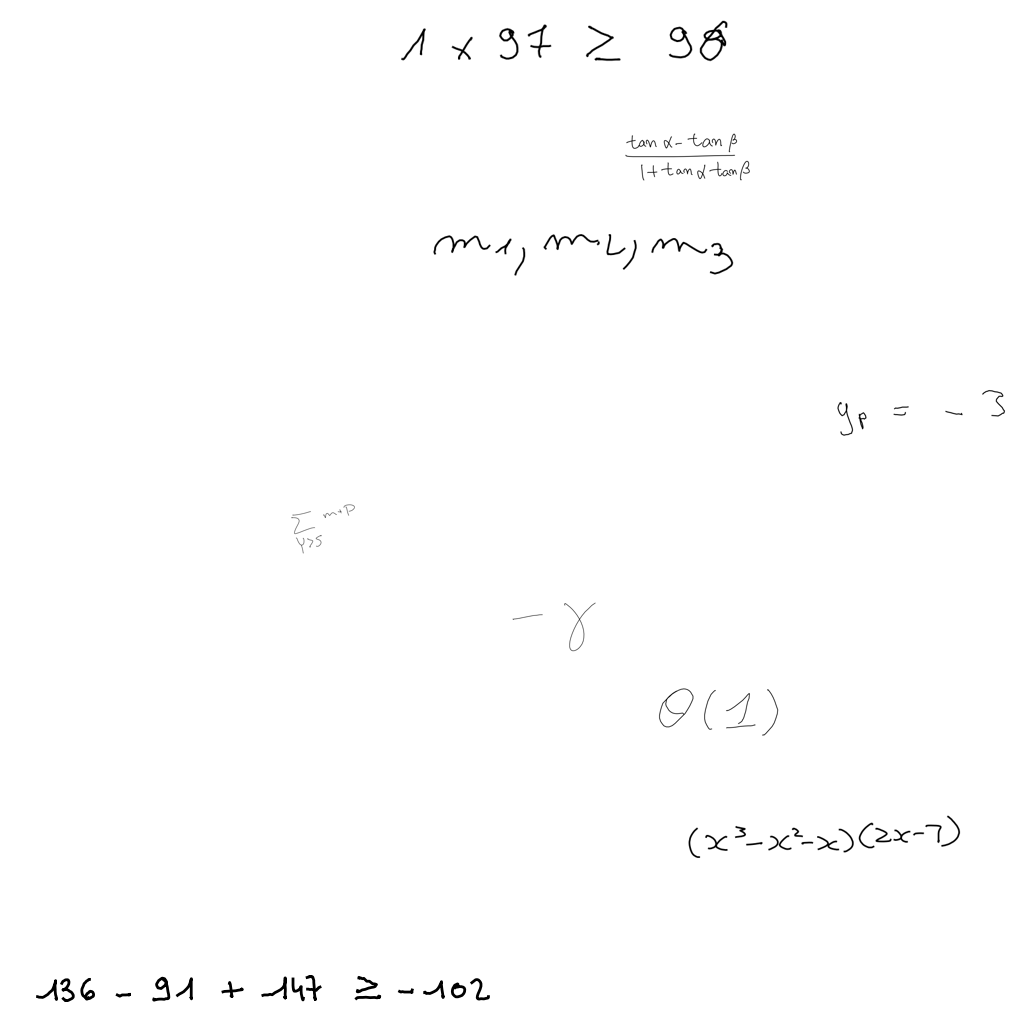 1 × 97 ≥ 98
\frac{\tan α - \tan β}{1 + \tan α \tan β}
m_1, m_2, m_3
y_p = -3
\sum_{Y>5}^{m+p}
-γ
Θ(1)
(x^3 - x^2 - x)(2x - 7)
136 - 91 + 147 ≥ -102